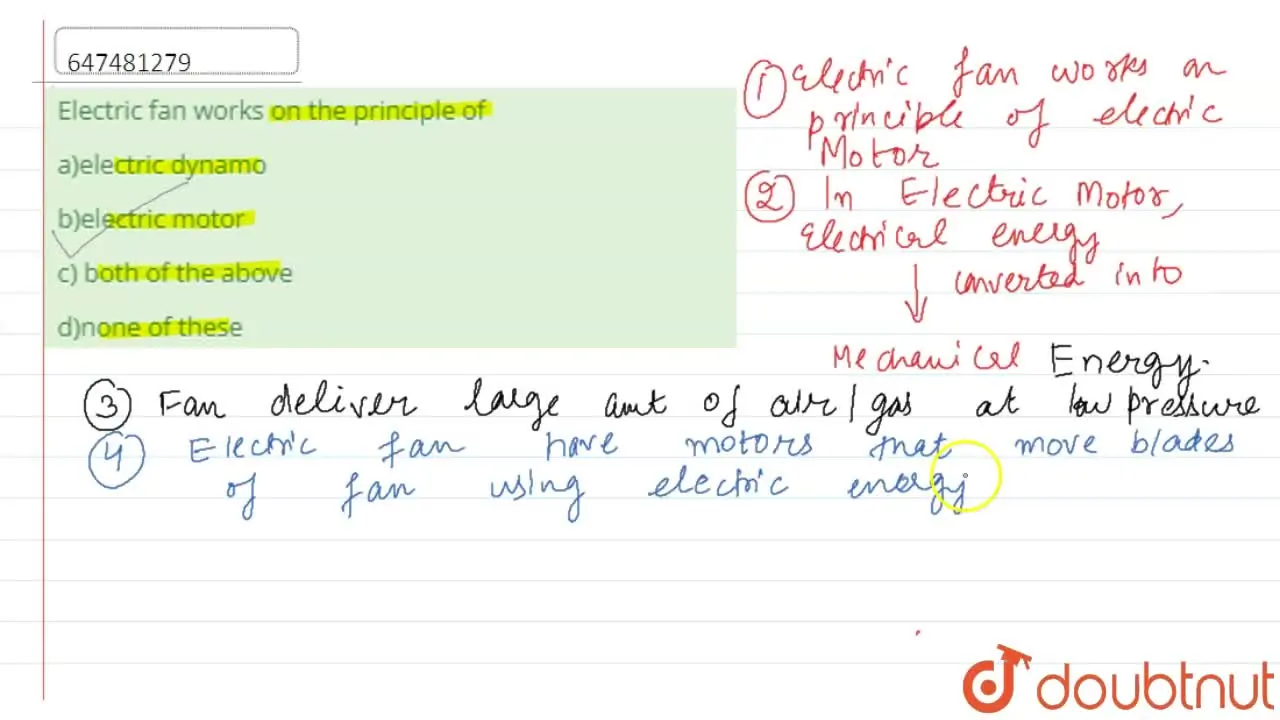 647481279
Electric fan works on the principle of
a)electric dynamo
b)electric motor
c) both of the above
d)none of these
① Electric fan works on
principle of electric
Motor
② In Electric Motor,
Electrical energy
converted into
Mechanical Energy.
③ Fan deliver large amt of air/gas at low pressure
④ Electric fan have motors that move blades
of fan using electric energy
doubtnut